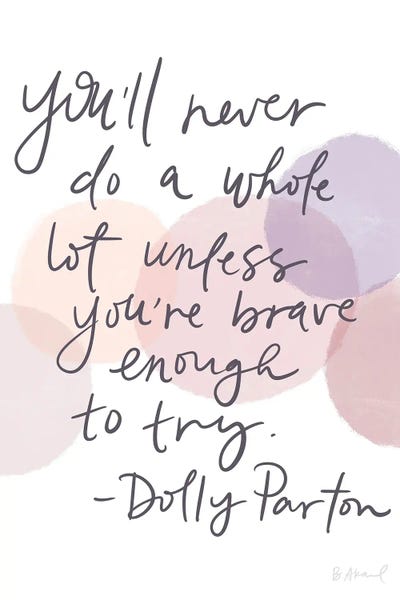 you'll never
do a whole
lot unless
you're brave
enough
to try.
-Dolly Parton